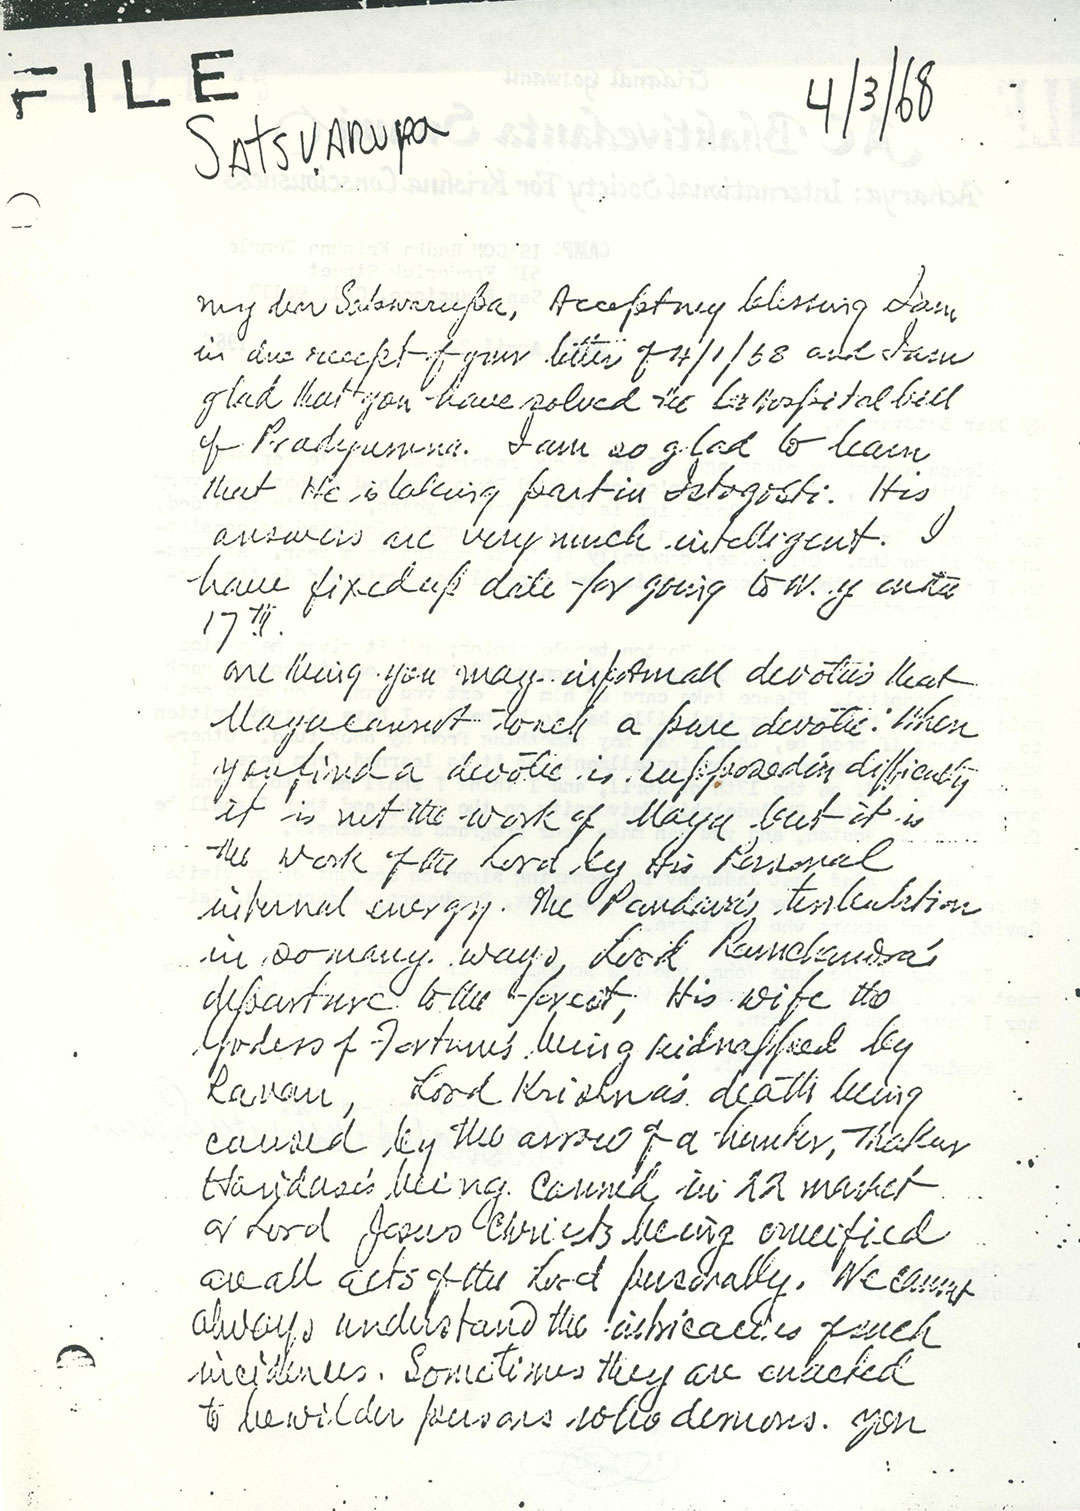 FILE
4/3/68
SATSVARUPA
my dear Satswarupa, Accept my blessing I am
in due receipt of your letter of 4/1/68 and I am
glad that you have solved the hospital bill
of Pradyumna. I am so glad to learn
that He is taking part in Istogosti. His
answers are very much intelligent. I
have fixed up date for going to N. Y on the
17th.
one thing you may inform all devotees that
Maya cannot touch a pure devotee. When
you find a devotee is supposed in difficulty
it is not the work of Maya but it is
the work of the Lord by His Personal
internal energy. The Pandava's tribulation
in so many ways, Lord Ramchandra's
departure to the forest, His wife the
Godess of Fortune's being kidnapped by
Ravan, Lord Krishna's death being
caused by the arrow of a hunter, Thakur
Haridas's being caned in 22 market
or Lord Jesus Christs being crucified
are all acts of the Lord personally. We cannot
always understand the intricacies of such
incidences. Sometimes they are enacted
to bewilder persons who demons. you